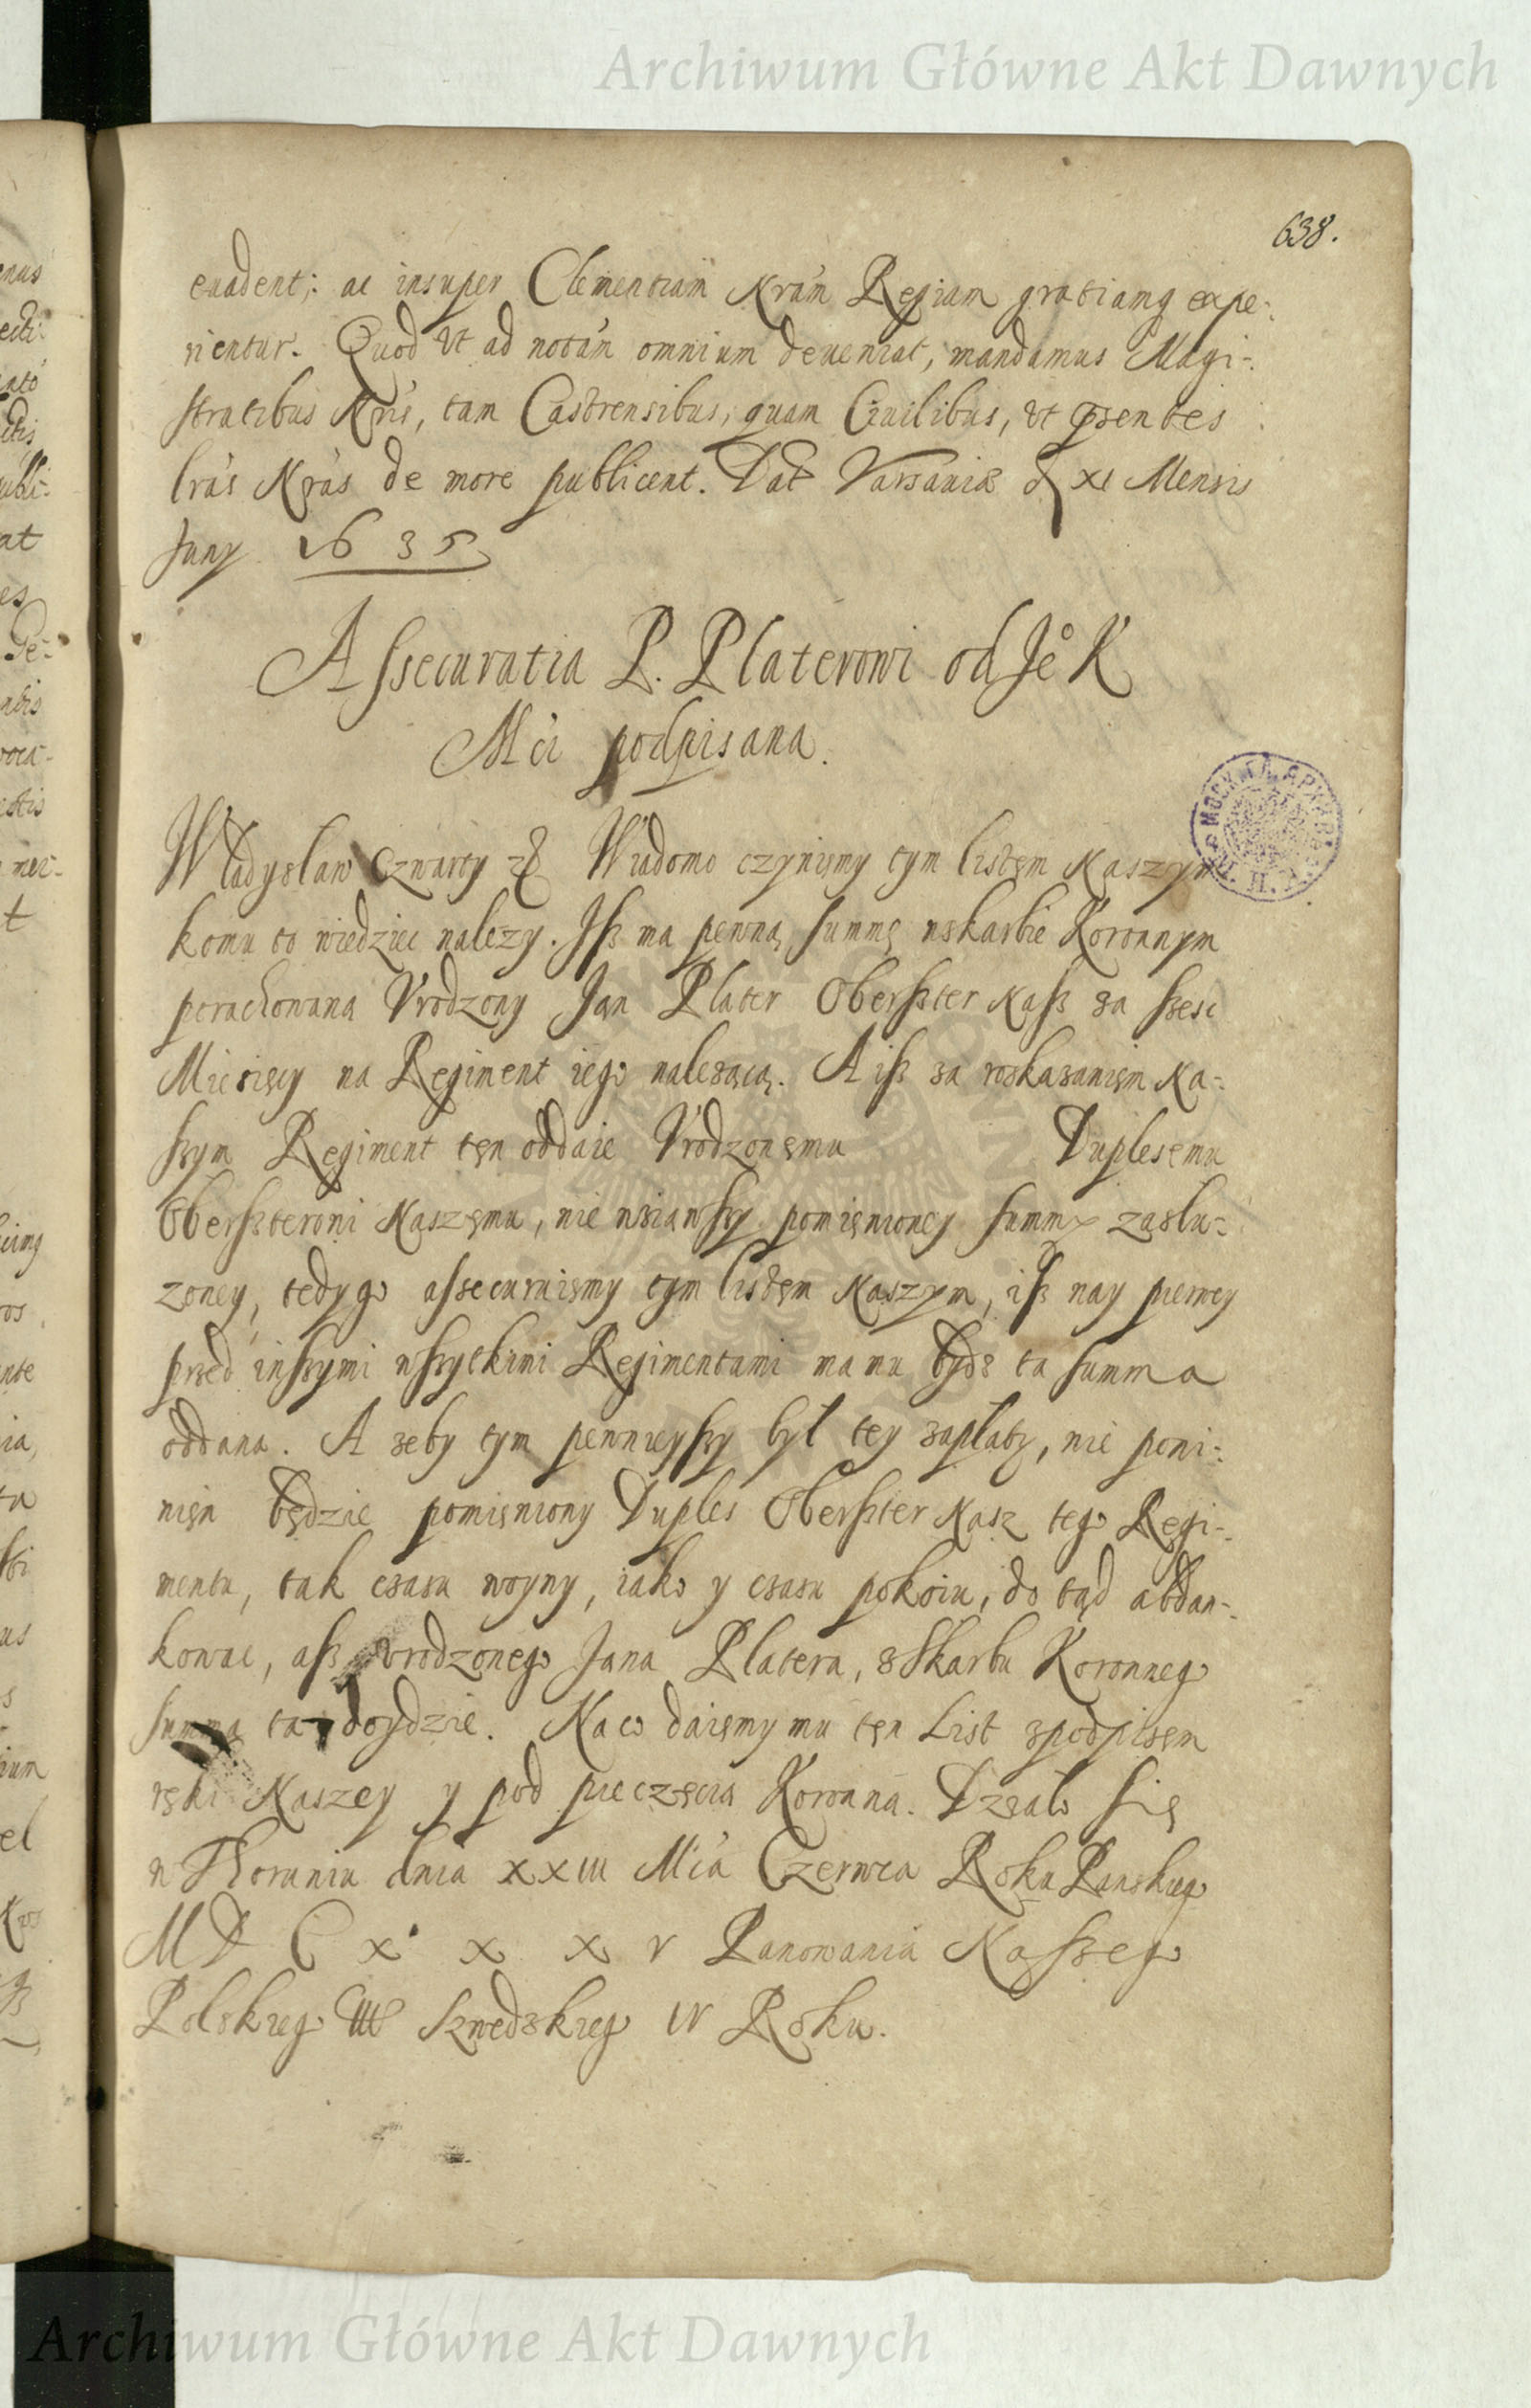 Archiwum Główne Akt Dawnych
638.
euadent; ac insuper Clementiam Nram Regiam gratiamq expe-
rientur. Quod vt ad notam omnium deueniat, mandamus Magi-
stratibus Nris, tam Castrensibus, quam Ciuilibus, vt pšentes
lras Nras de more publicent. Dat Varsauiæ d xi Mensis
Juny 1635
Assecuratia P. Platerowi od Je⁰ K
Mci podpisana.
Władysław Czwarty &c Wiadomo czyniemy tym listem Naszym
komu to wiedziec nalezy. Jsz ma pewną summę w skarbie Koronnym
porachowaną Vrodzony Jan Plater Oberszter Nasz za szesc
Miesięcy na Regiment iego nalezącą. A isz za roskazaniem Na-
szym Regiment ten oddaie Vrodzonemu Duplesemu
Oberszterowi Naszemu, nie wziąwszy pomienioney summy zaslu-
zoney, tedy go assecuruiemy tym listem Naszym, isz nay pierwey
przed inszymi wszytkimi Regimentami ma mu bydz ta summa
oddana. A zeby tym pewnieyszy był tey zapłaty, nie powi-
nien będzie pomieniony Duples Oberszter Nasz tego Regi-
mentu, tak czasu woyny, iako y czasu pokoiu, do tąd abdan-
kowac, asz vrodzonego Jana Platera, z Skarbu Koronnego
summa ta doydzie. Na co daiemy mu ten List z podpisem
ręki Naszey y pod pieczęcią Koronną. Dzęało się
w Thoruniu dnia xxiii Mca Czerwca Roku Panskiego
MDC x x x v Panowania Naszego
Polskiego III Szwedzkiego IV Roku.
Archiwum Główne Akt Dawnych